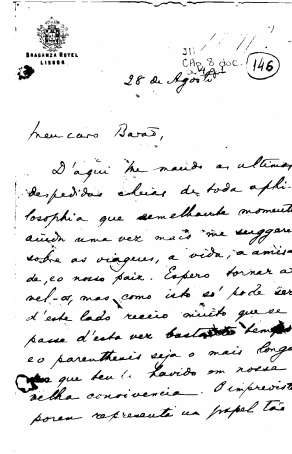 BRAGANZA HOTEL
LISBOA
CAP. 8 doc.
146
28 de Agosto
Meu caro Barão,
D'aqui lhe mando as ultimas
despedidas cheias de toda a phi-
losophia que semelhante momento
ainda uma vez mais me suggere
sobre as viagens, a vida, a amisa-
de, e o nosso paiz. Espero tornar a
vel-os, mas como isto só pode ser
d'este lado receio muito que se
passe d'esta vez bastante tempo
e o parenthesis seja o mais longo
que tenha havido em nossa
velha convivencia. O imprevisto
porem representa um papel tão